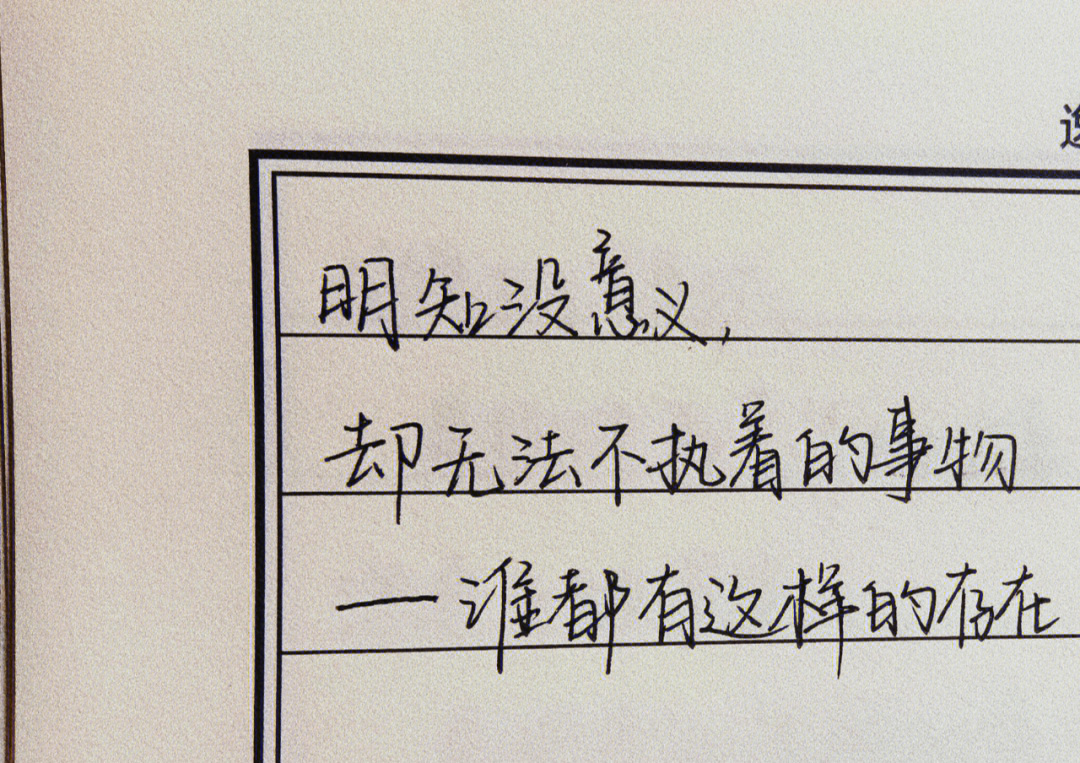 明知没意义,
却无法不执着的事物
—谁都有这样的存在